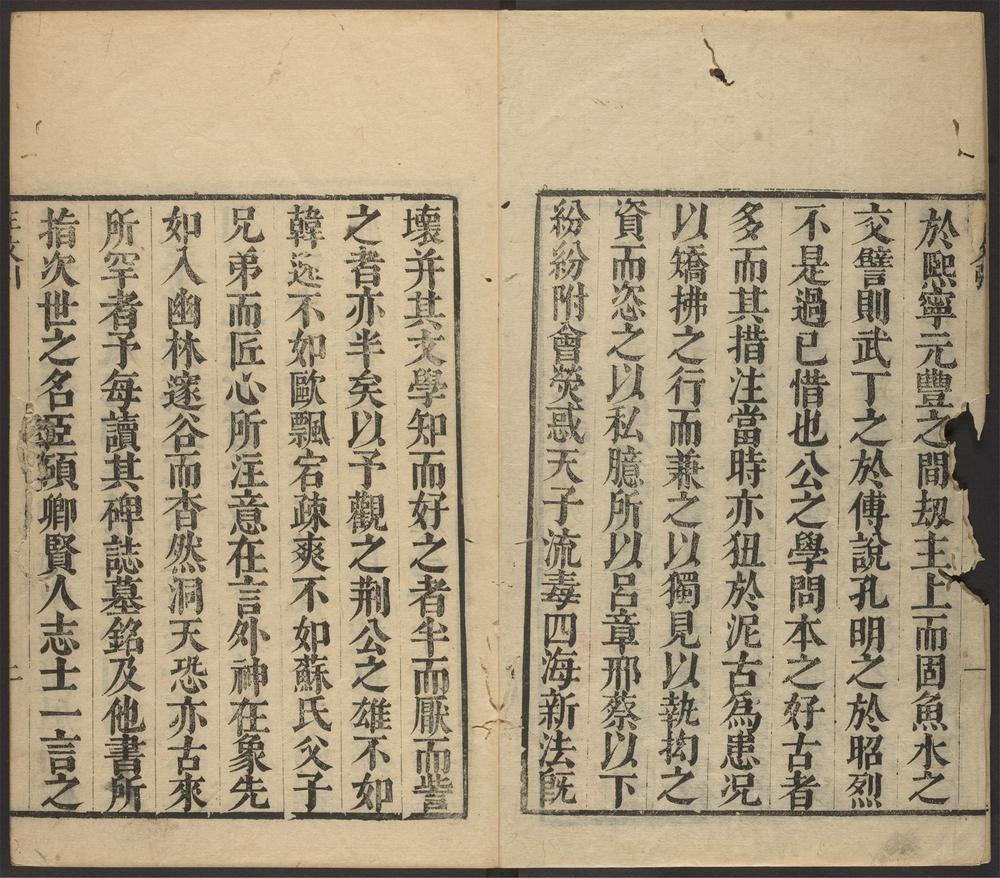 於熈寧元豐之間刼主上而固魚水之
交譬則武丁之於傅說孔明之於昭烈
不是過已惜也公之學問本之好古者
多而其措注當時亦狃於泥古為患况
以矯拂之行而兼之以獨見以執抝之
資而恣之以私臆所以呂章邢蔡以下
紛紛附會熒惑天子流毒四海新法旣
壞并其文學知而好之者半而厭而訾
之者亦半矣以予觀之荆公之雄不如
韓逸不如歐飄宕疎爽不如蘇氏父子
兄弟而匠心所注意在言外神在象先
如入幽林邃谷而杳然洞天恐亦古來
所罕者予每讀其碑誌墓銘及他書所
指次世之名臣碩卿賢人志士一言之